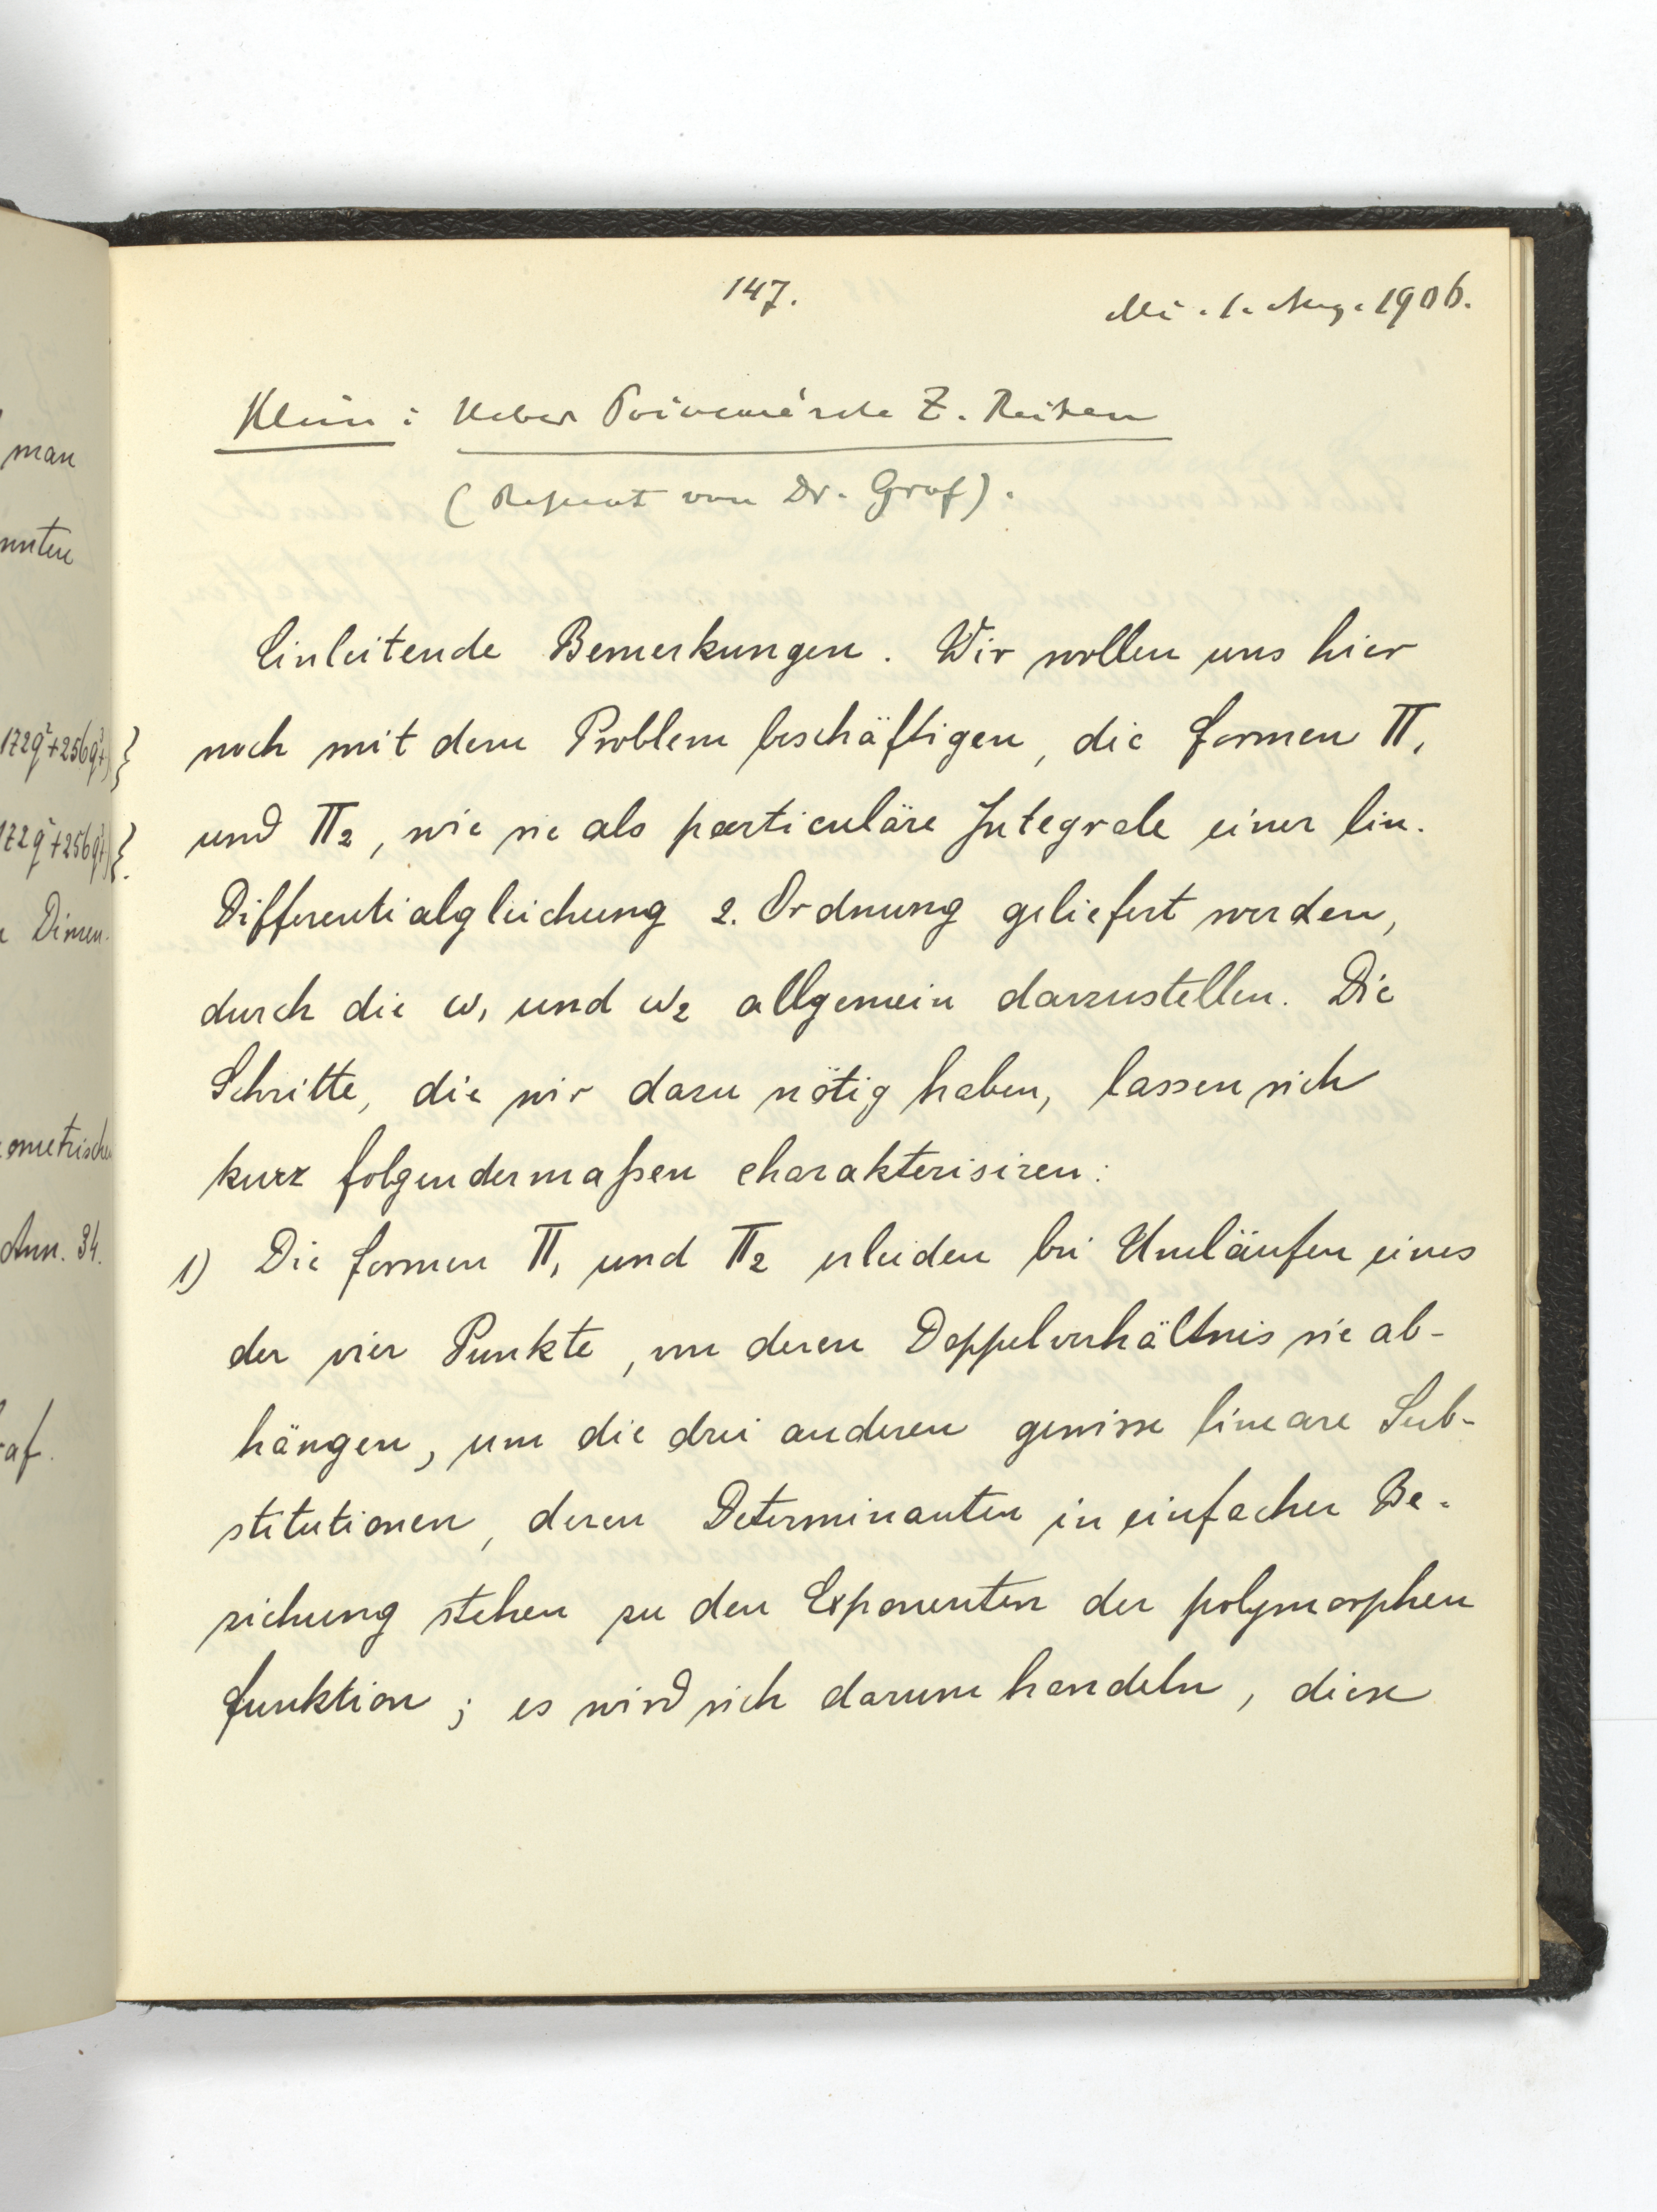 147.
Mi. 1. Aug. 1906.
Klein: Ueber Poincaré'sche Z. Reihen
(Referat von Dr. Graf).
Einleitende Bemerkungen. Wir wollen uns hier
noch mit dem Problem beschäftigen, die Formen Π₁
und Π₂, wie sie als particuläre Integrale einer lin.
Differentialgleichung 2. Ordnung geliefert werden,
durch die ω₁ und ω₂ allgemein darzustellen. Die
Schritte, die wir dazu nötig haben, lassen sich
kurz folgendermaßen charakterisiren:
1) Die Formen Π₁ und Π₂ erleiden bei Umläufen eines
der vier Punkte, von deren Doppelverhältnis sie ab-
hängen, um die drei anderen gewisse lineare Sub-
stitutionen, deren Determinanten in einfacher Be-
ziehung stehen zu den Exponenten der polymorphen
Funktion; es wird sich darum handeln, diese
man
nnten
172q²+256q³+)}
172q²+256q³+)}.
Dimen-
ometrischen
Ann. 34.
raf.